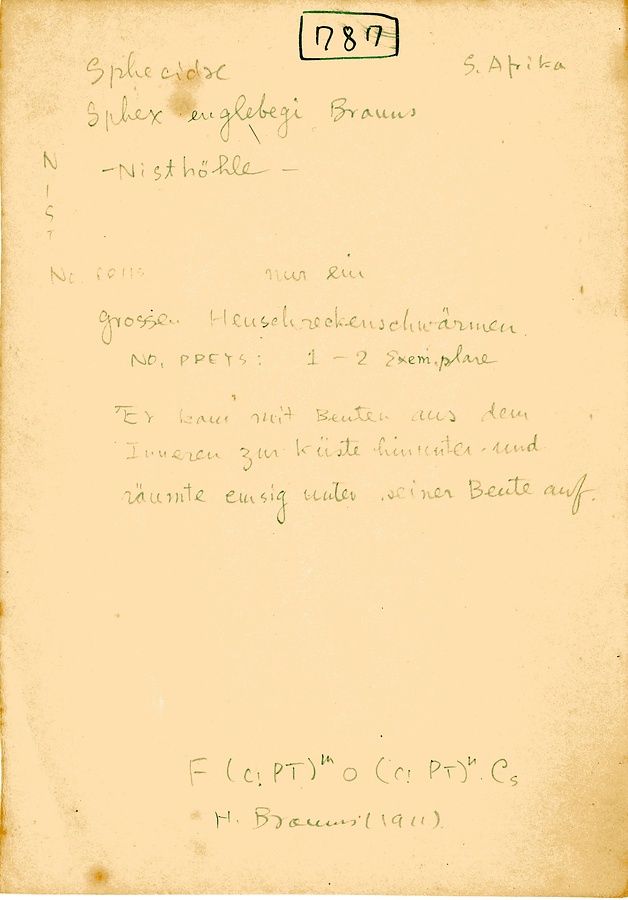 787
Sphecidae S. Afrika
Sphex englebegi Brauns
-Nisthöhle-
NIST
nur ein
grossen Heuschreckenschwärmen.
NO. PREYS: 1-2 Exemplare
"Er kam" mit Beuten aus dem
Inneren zur Küste hinunter und
räumte emsig unter seiner Beute auf.
F (C! PT)ᵐ O (C! PT)ⁿ. Cs
H. Brauns (1911)